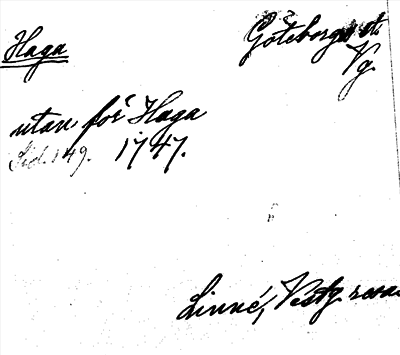 Haga
Göteborgs st.
Vg
utan för Haga
Sid. 149. 1747.
Linné, Vestg resa